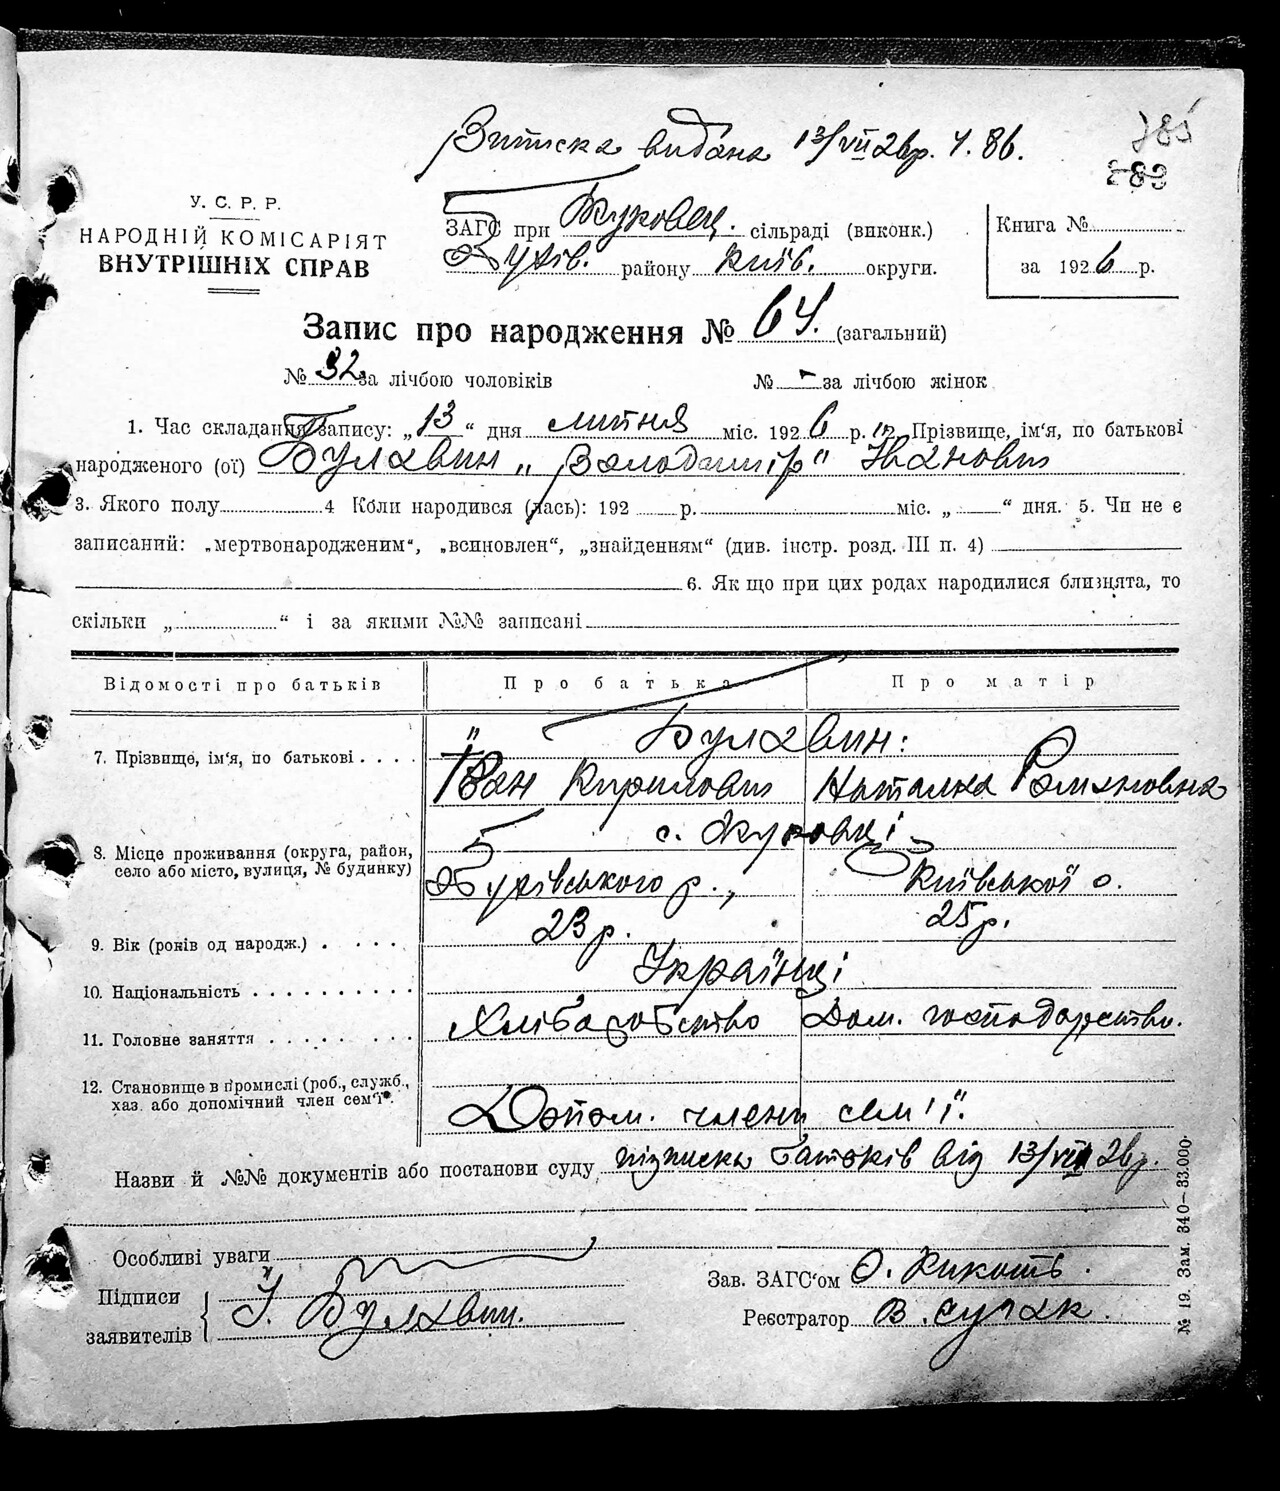 Виписка видана 13/VII 26р. ч. 86.
785
283
У. С. Р. Р.
НАРОДНІЙ КОМІСАРІЯТ
ВНУТРІШНІХ СПРАВ
ЗАГС при Жуковец. сільраді (виконк.)
району Київ. округи.
Книга №
за 1926 р.
Запис про народження № 64. (загальний)
№ 32 за лічбою чоловіків № - за лічбою жінок
1. Час складання запису: „13“ дня липня міс. 1926 р. 2. Прізвище, ім'я, по батькові
народженого (ої) Булавин „Володимір“ Іванович
3. Якого полу 4 Коли народився (лась): 192 р. міс. „ “ дня. 5. Чи не є
записаний: „мертвонародженим“, „всиновлен“, „знайденням“ (див. інстр. розд. III п. 4)
6. Як що при цих родах народилися близнята, то
скільки „ “ і за якими №№ записані
Відомості про батьків Про батька Про матір
7. Прізвище, ім'я, по батькові Булавин:
Іван Кирилович Наталка Романовна
8. Місце проживання (округа, район, село або місто, вулиця, № будинку) с. Жуковці
р., Київської о.
9. Вік (років од народж.) 23 р. 25 р.
10. Національність Українці
11. Головне заняття Хліборобство Дом. господарство.
12. Становище в промислі (роб., служб.,
хаз. або допомічний член сем'ї. Допом. члени сем'ї.
Назви й №№ документів або постанови суду підписка батьків від 13/VII 26р.
Особливі уваги
Підписи
заявителів І. Булавин.
Зав. ЗАГС'ом О. Кикоть.
Реєстратор В. Сучак.
№ 19. Зам. 340—33.000